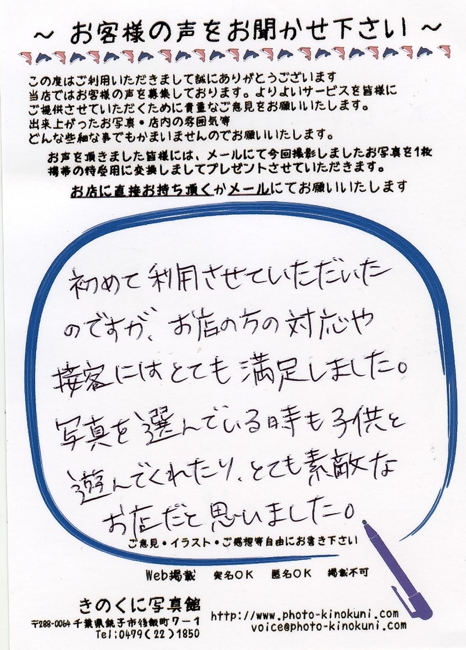 ～ お客様の声をお聞かせ下さい ～
この度はご利用いただきまして誠にありがとうございます
当店ではお客様の声を募集しております。よりよいサービスを皆様に
ご提供させていただくために貴重なご意見をお願いいたします。
出来上がったお写真・店内の雰囲気等
どんな些細な事でもかまいませんのでお願いいたします。
お声を頂きました皆様には、メールにて今回撮影しましたお写真を1枚
携帯の待受用に交換しましてプレゼントさせていただきます。
お店に直接お持ち頂くかメールにてお願いいたします
初めて利用させていただいた
のですが、お店の方の対応や
接客にはとても満足しました。
写真を選んでいる時も子供と
遊んでくれたり、とても素敵な
お店だと思いました。
ご意見・イラスト・ご感想等自由にお書き下さい
Web掲載 実名OK 匿名OK 掲載不可
きのくに写真館
〒288-0064 千葉県銚子市待飯町7-1
Tel:0479(22)1850
http://www.photo-kinokuni.com/
voice@photo-kinokuni.com